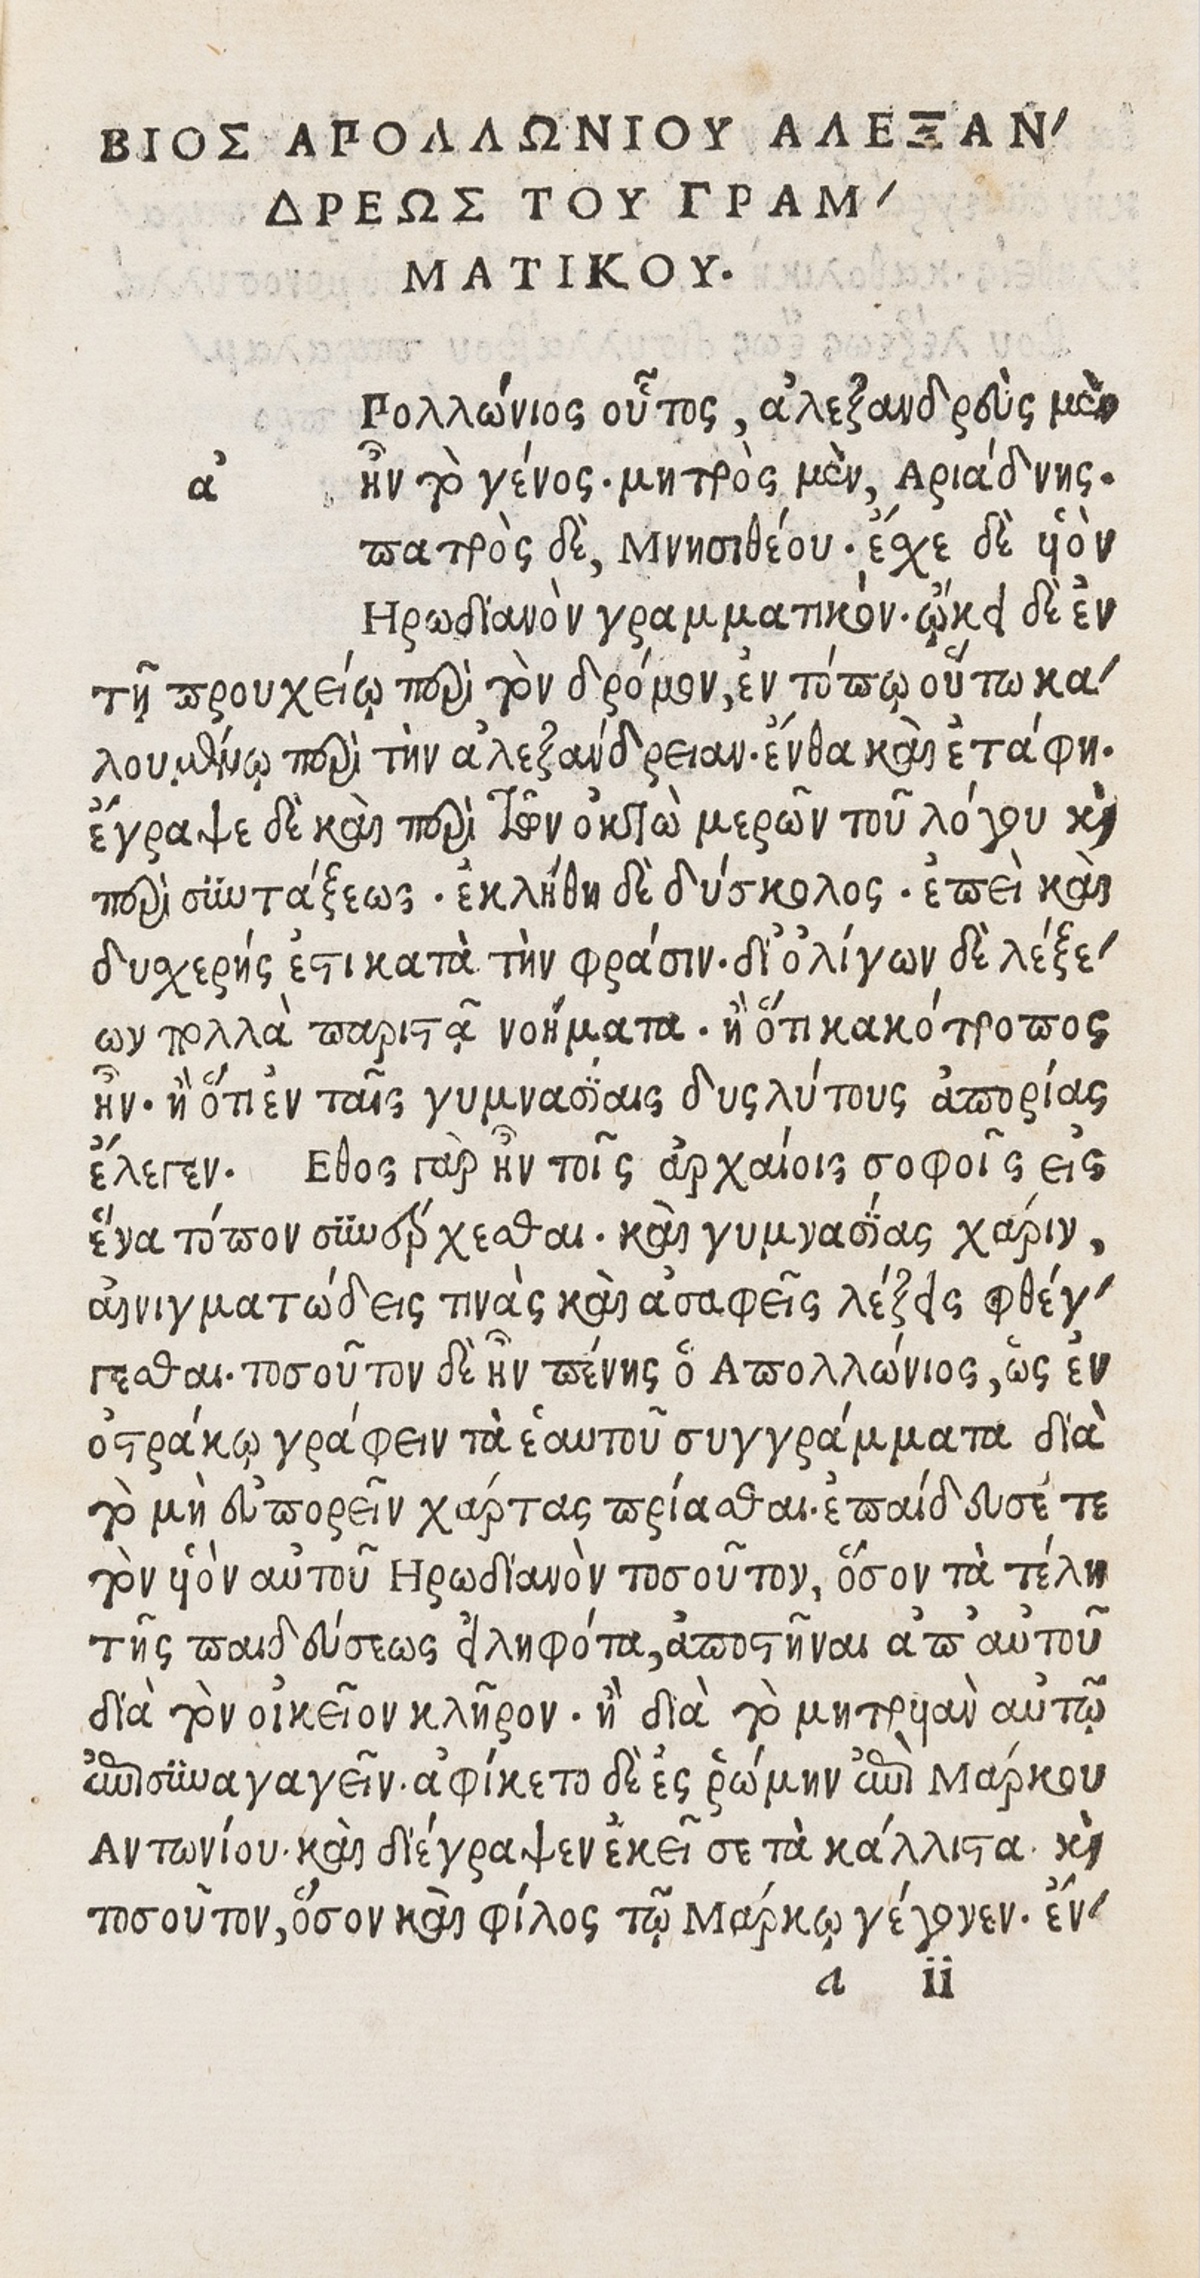 ΒΙΟΣ ΑΠΟΛΛΩΝΙΟΥ ΑΛΕΞΑΝ/
ΔΡΕΩΣ ΤΟΥ ΓΡΑΜ/
ΜΑΤΙΚΟΥ.
Πολλώνιος οὗτος, ἀλεξανδρεὺς μὲν
ἀ
ἦν τὸ γένος. μητρὸς μὲν, Αριάδνης.
πατρὸς δὲ, Μνησιθέου. ἔχε δὲ υἱὸν
Ηρωδιανὸν γραμματικόν. ᾤκει δὲ ἐν
τῇ προυχείῳ περὶ τὸν δρόμον, ἐν τόπῳ οὕτω κα/
λουμένῳ περὶ τὴν ἀλεξάνδρειαν. ἔνθα καὶ ἐτάφη.
ἔγραψε δὲ καὶ περὶ τῶν ὀκτὼ μερῶν τοῦ λόγου κὶ
περὶ συντάξεως. ἐκλήθη δὲ δύσκολος. ἐπεὶ καὶ
δυχερής ἐστι κατὰ τὴν φράσιν. δι' ὀλίγων δὲ λέξε/
ων πολλὰ παριστᾷ νοήματα. ἢ ὅτι κακότροπος
ἦν. ἢ ὅτι ἐν ταῖς γυμνασίαις δυςλύτους ἀπορίας
ἔλεγεν. Εθος γὰρ ἦν τοῖς ἀρχαίοις σοφοῖς εἰς
ἕνα τόπον συνέρχεσθαι. καὶ γυμνασίας χάριν,
αἰνιγματώδεις τινὰς καὶ ἀσαφεῖς λέξεις φθέγ/
γεσθαι. τοσοῦτον δὲ ἦν πένης ὁ Απολλώνιος, ὡς ἐν
ὀστράκῳ γράφειν τὰ ἑαυτοῦ συγγράμματα διὰ
τὸ μὴ εὐπορεῖν χάρτας πρίασθαι. ἐπαίδευσέ τε
τὸν υἱὸν αὐτοῦ Ηρωδιανὸν τοσοῦτον, ὅσον τὰ τέλη
τῆς παιδεύσεως εἰληφότα, ἀποστῆναι ἀπ' αὐτοῦ
διὰ τὸν οἰκεῖον κλῆρον. ἢ διὰ τὸ μητρυιὰν αὐτῷ
ἐπισυναγαγεῖν. ἀφίκετο δὲ ἐς ῥώμην ἐπὶ Μάρκου
Αντωνίου. καὶ διέγραψεν ἐκεῖσε τὰ κάλλιστα. κὶ
τοσοῦτον, ὅσον καὶ φίλος τῷ Μάρκῳ γέγονεν. ἔν/
a ii